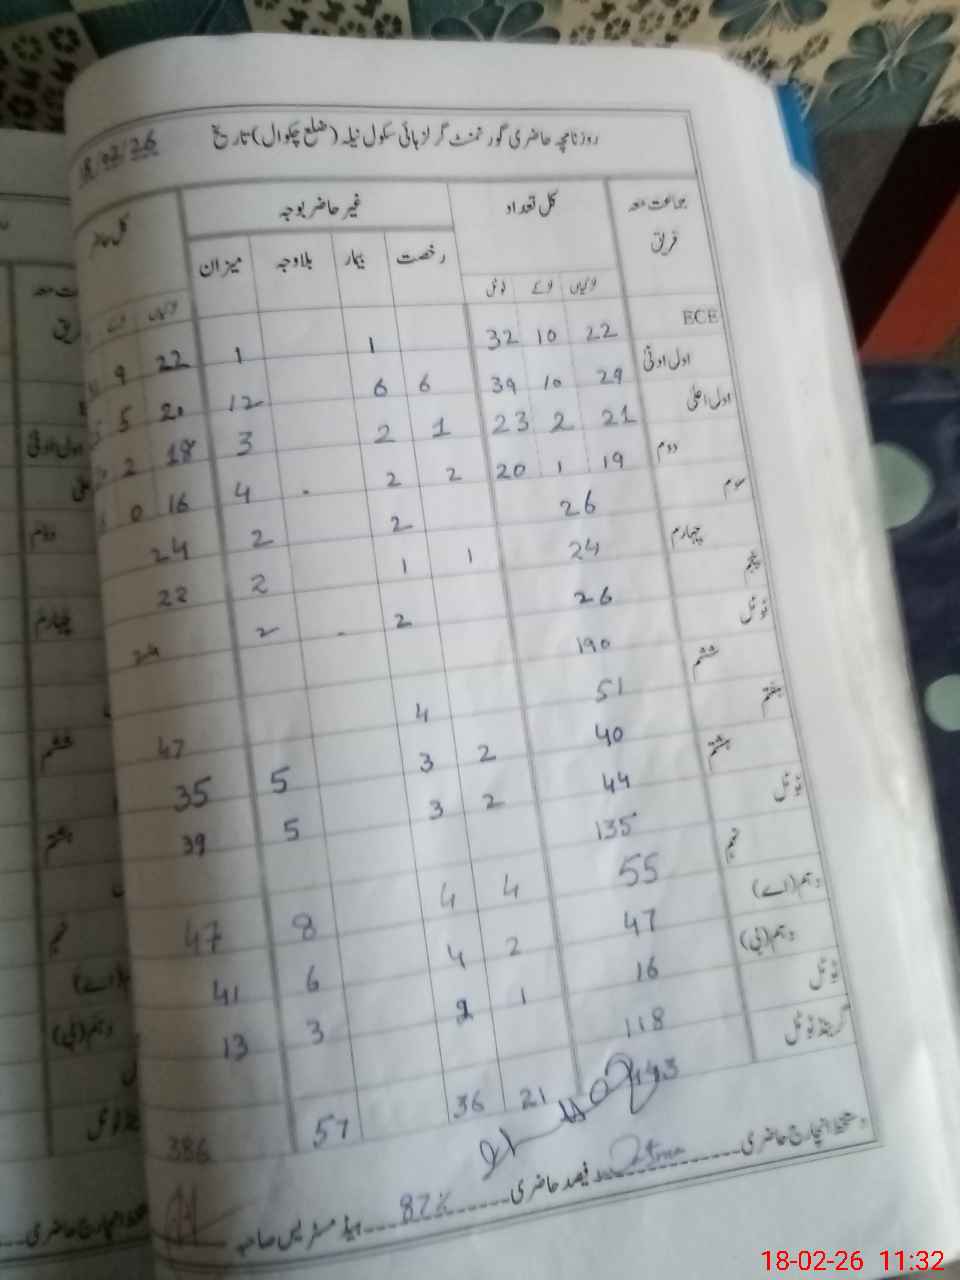 روزنامچہ حاضری گورنمنٹ گرلز ہائی سکول نیلہ (ضلع چکوال) تاریخ 18/02/26
جماعت معہ فریق کل تعداد غیر حاضر بوجہ کل حاضر
رخصت بیمار بلاوجہ میزان
لڑکیاں لڑکے ٹوٹل لڑکیاں لڑکے
ECE 22 10 32 1 1 22 9
اول ادنیٰ 29 10 39 6 6 12 20 5
اول اعلیٰ 21 2 23 1 2 3 18 2
دوم 19 1 20 2 2 4 16 0
سوم 26 2 2 24
چہارم 24 1 1 2 22
پنجم 26 2 2 24
ٹوٹل 190
ششم 51 4 47
ہفتم 40 2 3 5 35
ہشتم 44 2 3 5 39
ٹوٹل 135
نہم 55 4 4 8 47
دہم (اے) 47 2 4 6 41
دہم (بی) 16 1 2 3 13
ٹوٹل 118
گرینڈ ٹوٹل 443 21 36 57 386
دستخط انچارج حاضری فیصد حاضری 87% ہیڈ مسٹریس صاحبہ
18-02-26 11:32